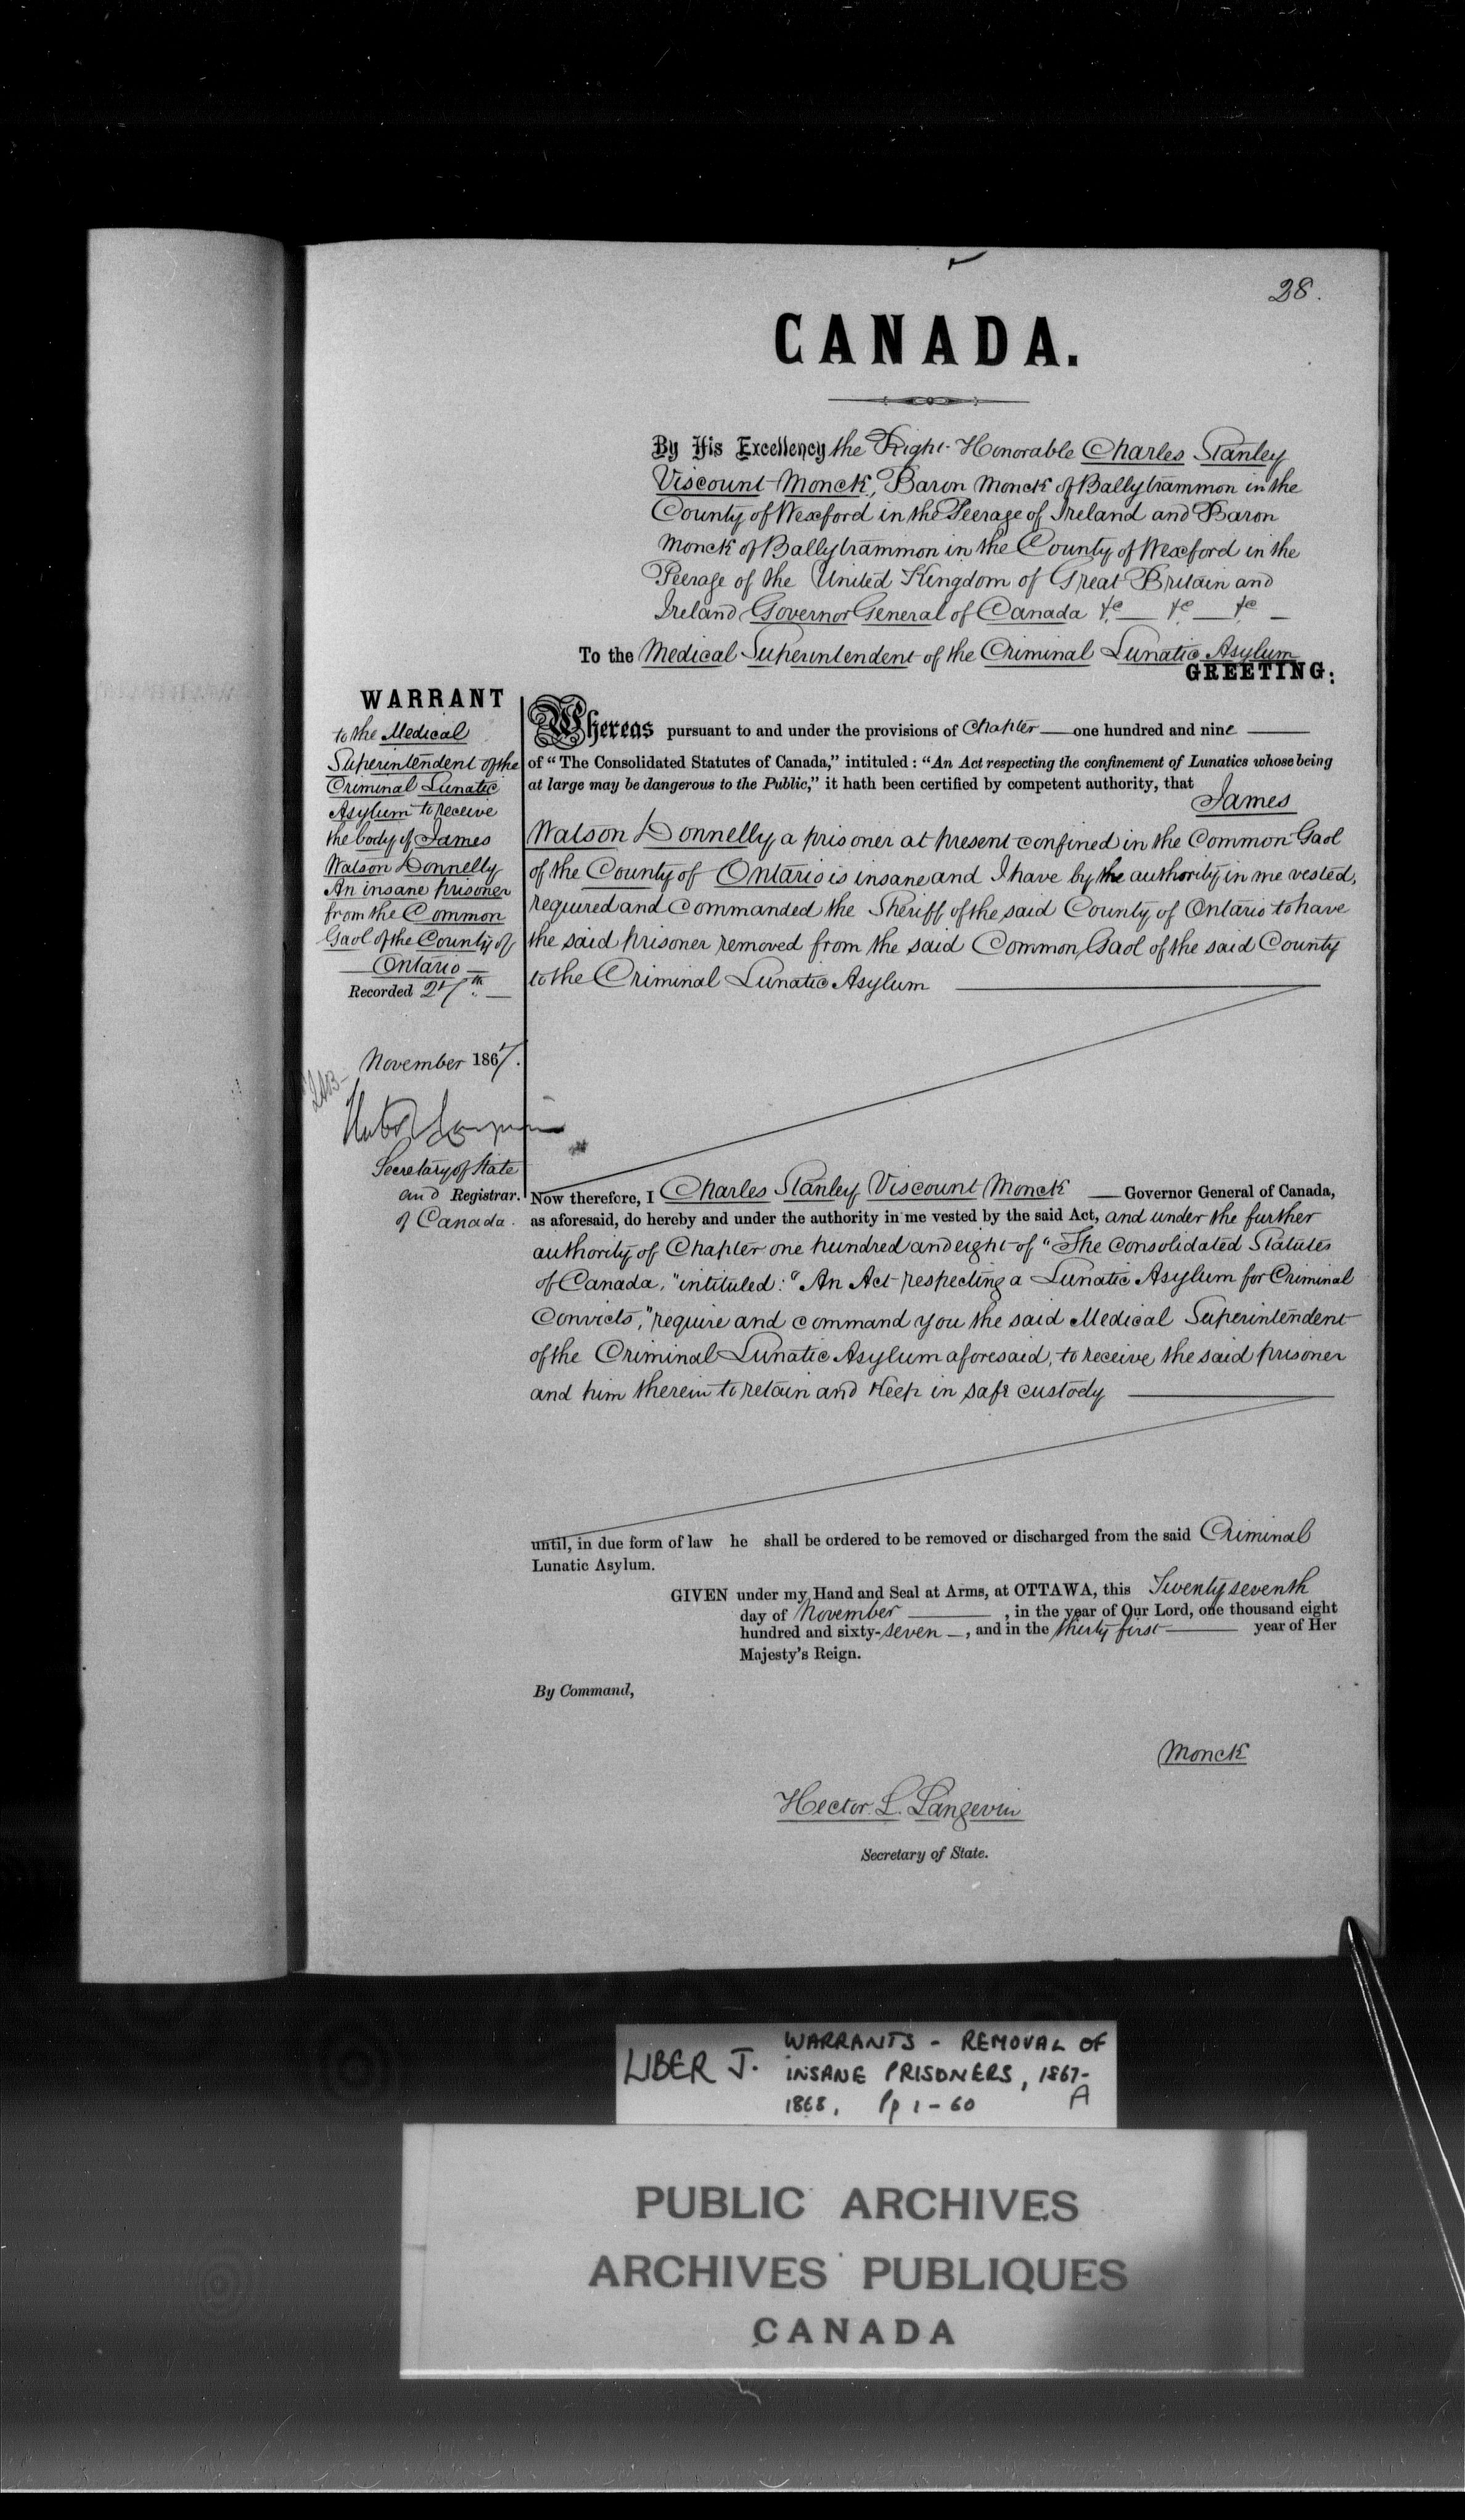 28.
CANADA.
By His Excellency the Right Honorable Charles Stanley
Viscount Monck, Baron Monck of Ballytrammon in the
County of Wexford in the Peerage of Ireland and Baron
Monck of Ballytrammon in the County of Wexford in the
Peerage of the United Kingdom of Great Britain and
Ireland Governor General of Canada &c &c &c
To the Medical Superintendent of the Criminal Lunatic Asylum
GREETING:
WARRANT
to the Medical
Superintendent of the
Criminal Lunatic
Asylum to receive
the body of James
Watson Donnelly
An insane prisoner
from the Common
Gaol of the County of
Ontario
Recorded 27th.
November 1867.
Secretary of State
and Registrar.
of Canada.
Whereas pursuant to and under the provisions of Chapter one hundred and nine
of "The Consolidated Statutes of Canada," intituled: "An Act respecting the confinement of Lunatics whose being
at large may be dangerous to the Public," it hath been certified by competent authority, that
James
Watson Donnelly a prisoner at present confined in the Common Gaol
of the County of Ontario is insane and I have by the authority in me vested,
required and commanded the Sheriff of the said County of Ontario to have
the said prisoner removed from the said Common Gaol of the said County
to the Criminal Lunatic Asylum
Now therefore, I Charles Stanley Viscount Monck Governor General of Canada,
as aforesaid, do hereby and under the authority in me vested by the said Act, and under the further
authority of Chapter one hundred and eight of "The Consolidated Statutes
of Canada," intituled: "An Act respecting a Lunatic Asylum for Criminal
Convicts," require and command you the said Medical Superintendent
of the Criminal Lunatic Asylum aforesaid, to receive the said prisoner
and him therein to retain and keep in safe custody
until, in due form of law he shall be ordered to be removed or discharged from the said Criminal
Lunatic Asylum.
GIVEN under my Hand and Seal at Arms, at OTTAWA, this Twenty seventh
day of November , in the year of Our Lord, one thousand eight
hundred and sixty-seven , and in the thirty first year of Her
Majesty's Reign.
By Command,
Monck
Hector. L. Langevin
Secretary of State.
LIBER J. WARRANTS - REMOVAL OF
INSANE PRISONERS, 1867-
1868, Pp 1-60 A
PUBLIC ARCHIVES
ARCHIVES PUBLIQUES
CANADA